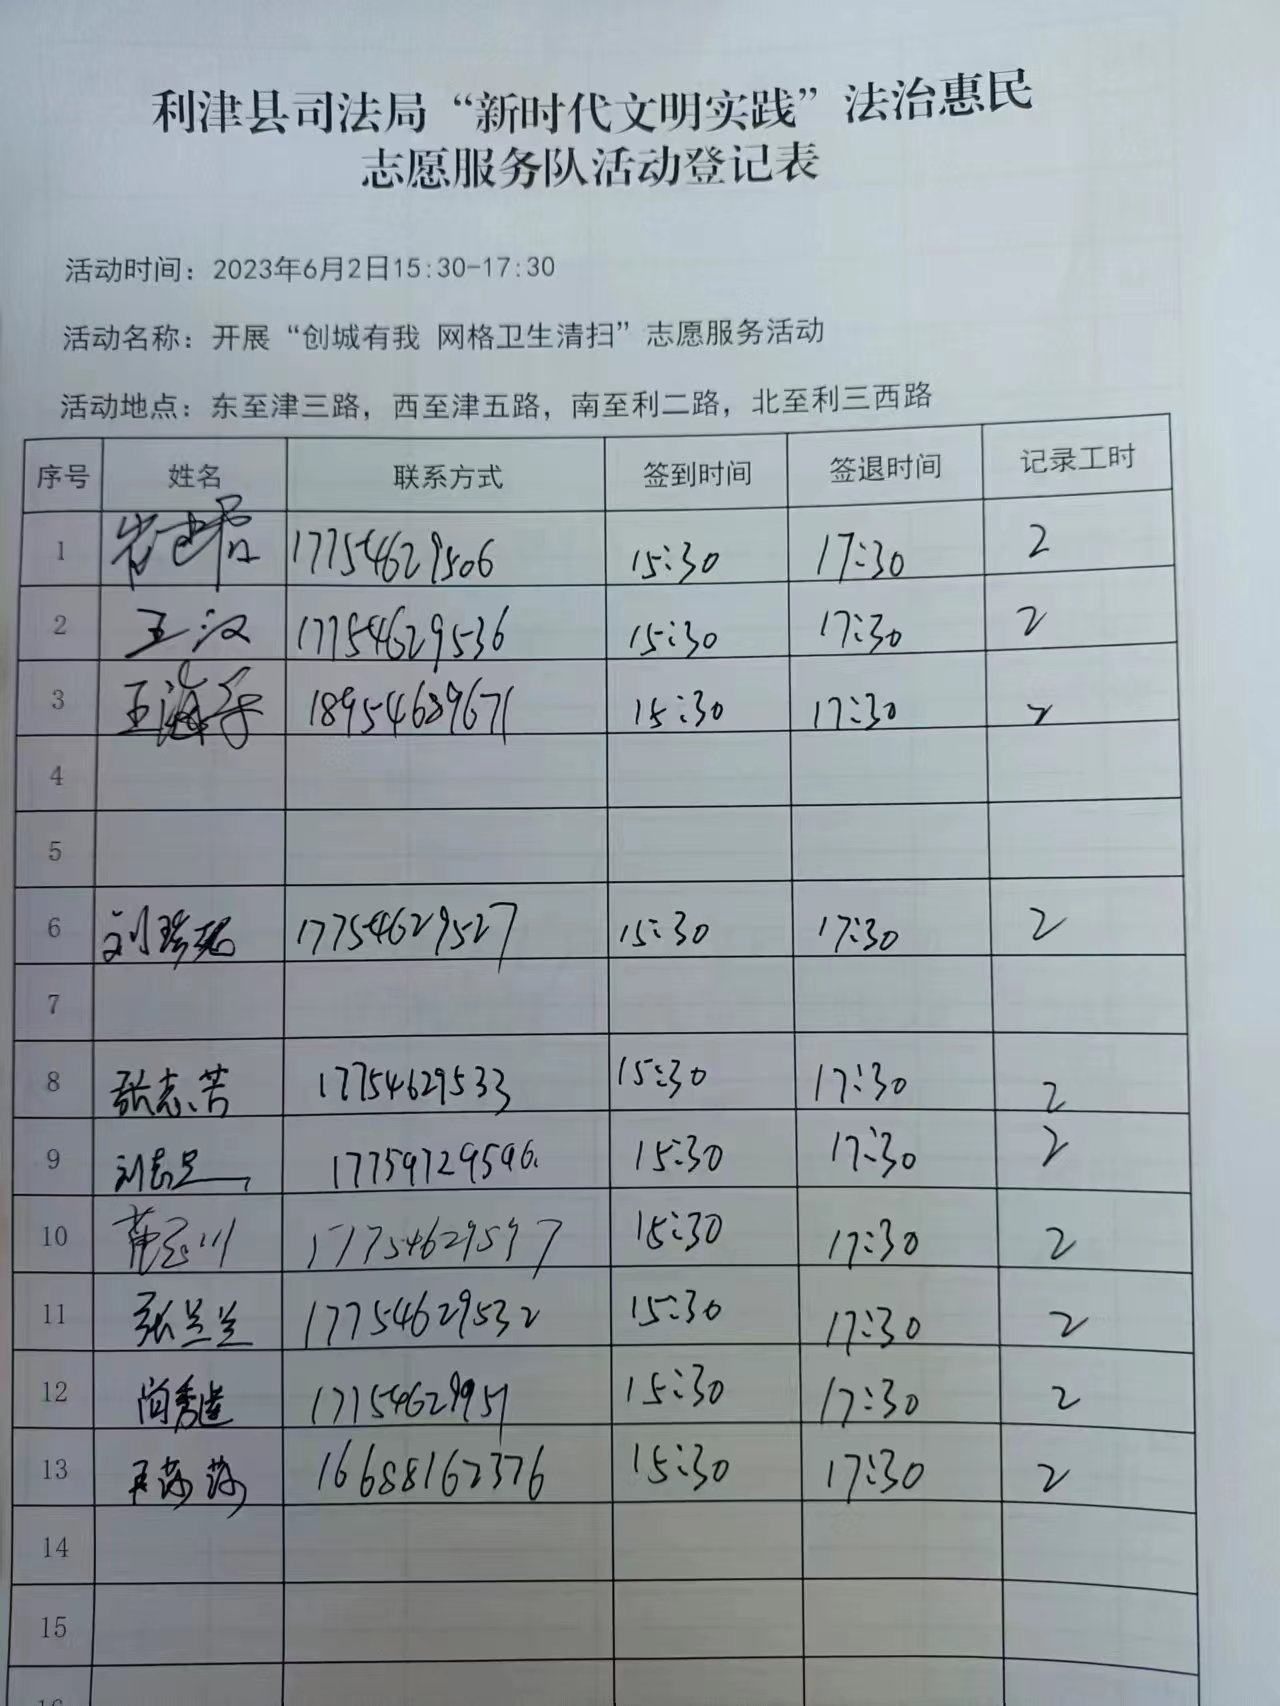 利津县司法局“新时代文明实践”法治惠民
志愿服务队活动登记表
活动时间：2023年6月2日15:30-17:30
活动名称：开展“创城有我 网格卫生清扫”志愿服务活动
活动地点：东至津三路，西至津五路，南至利二路，北至利三西路
序号 姓名 联系方式 签到时间 签退时间 记录工时
1 17754629506 15:30 17:30 2
2 王汉 17754629536 15:30 17:30 2
3 王海 18954689671 15:30 17:30 2
4
5
6 刘 17754629527 15:30 17:30 2
7
8 张志芳 17754629533 15:30 17:30 2
9 刘志 15:30 17:30 2
10 15:30 17:30 2
11 张兰兰 17754629532 15:30 17:30 2
12 尚秀 15:30 17:30 2
13 王莎莎 16688162376 15:30 17:30 2
14
15
16